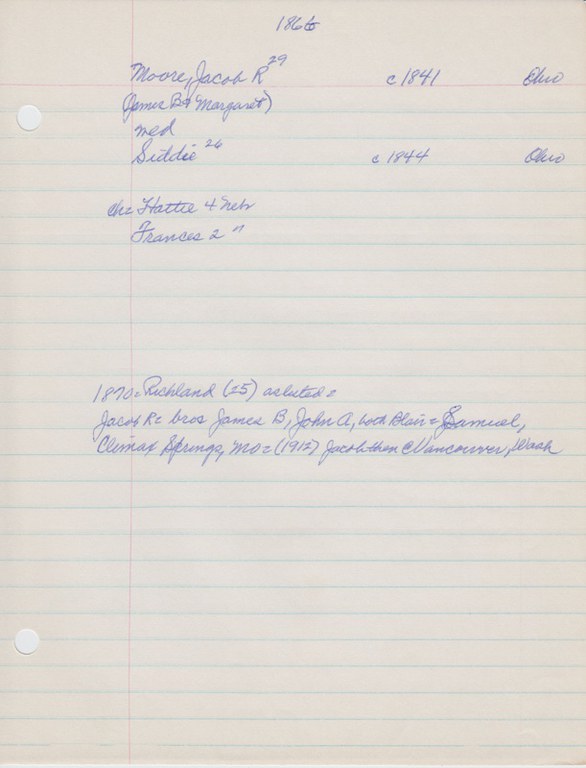 1866
Moore, Jacob R 29 c1841 Ohio
(James B & Margaret)
med
Siddie 26 c1844 Ohio
ch= Hattie 4 Nebr
Frances 2 "
1870= Richland (25) as listed=
Jacob R= bros James B, John A, both Blair= Samuel,
Climax Springs, Mo= (1912) Jacob then @ Vancouver, Wash